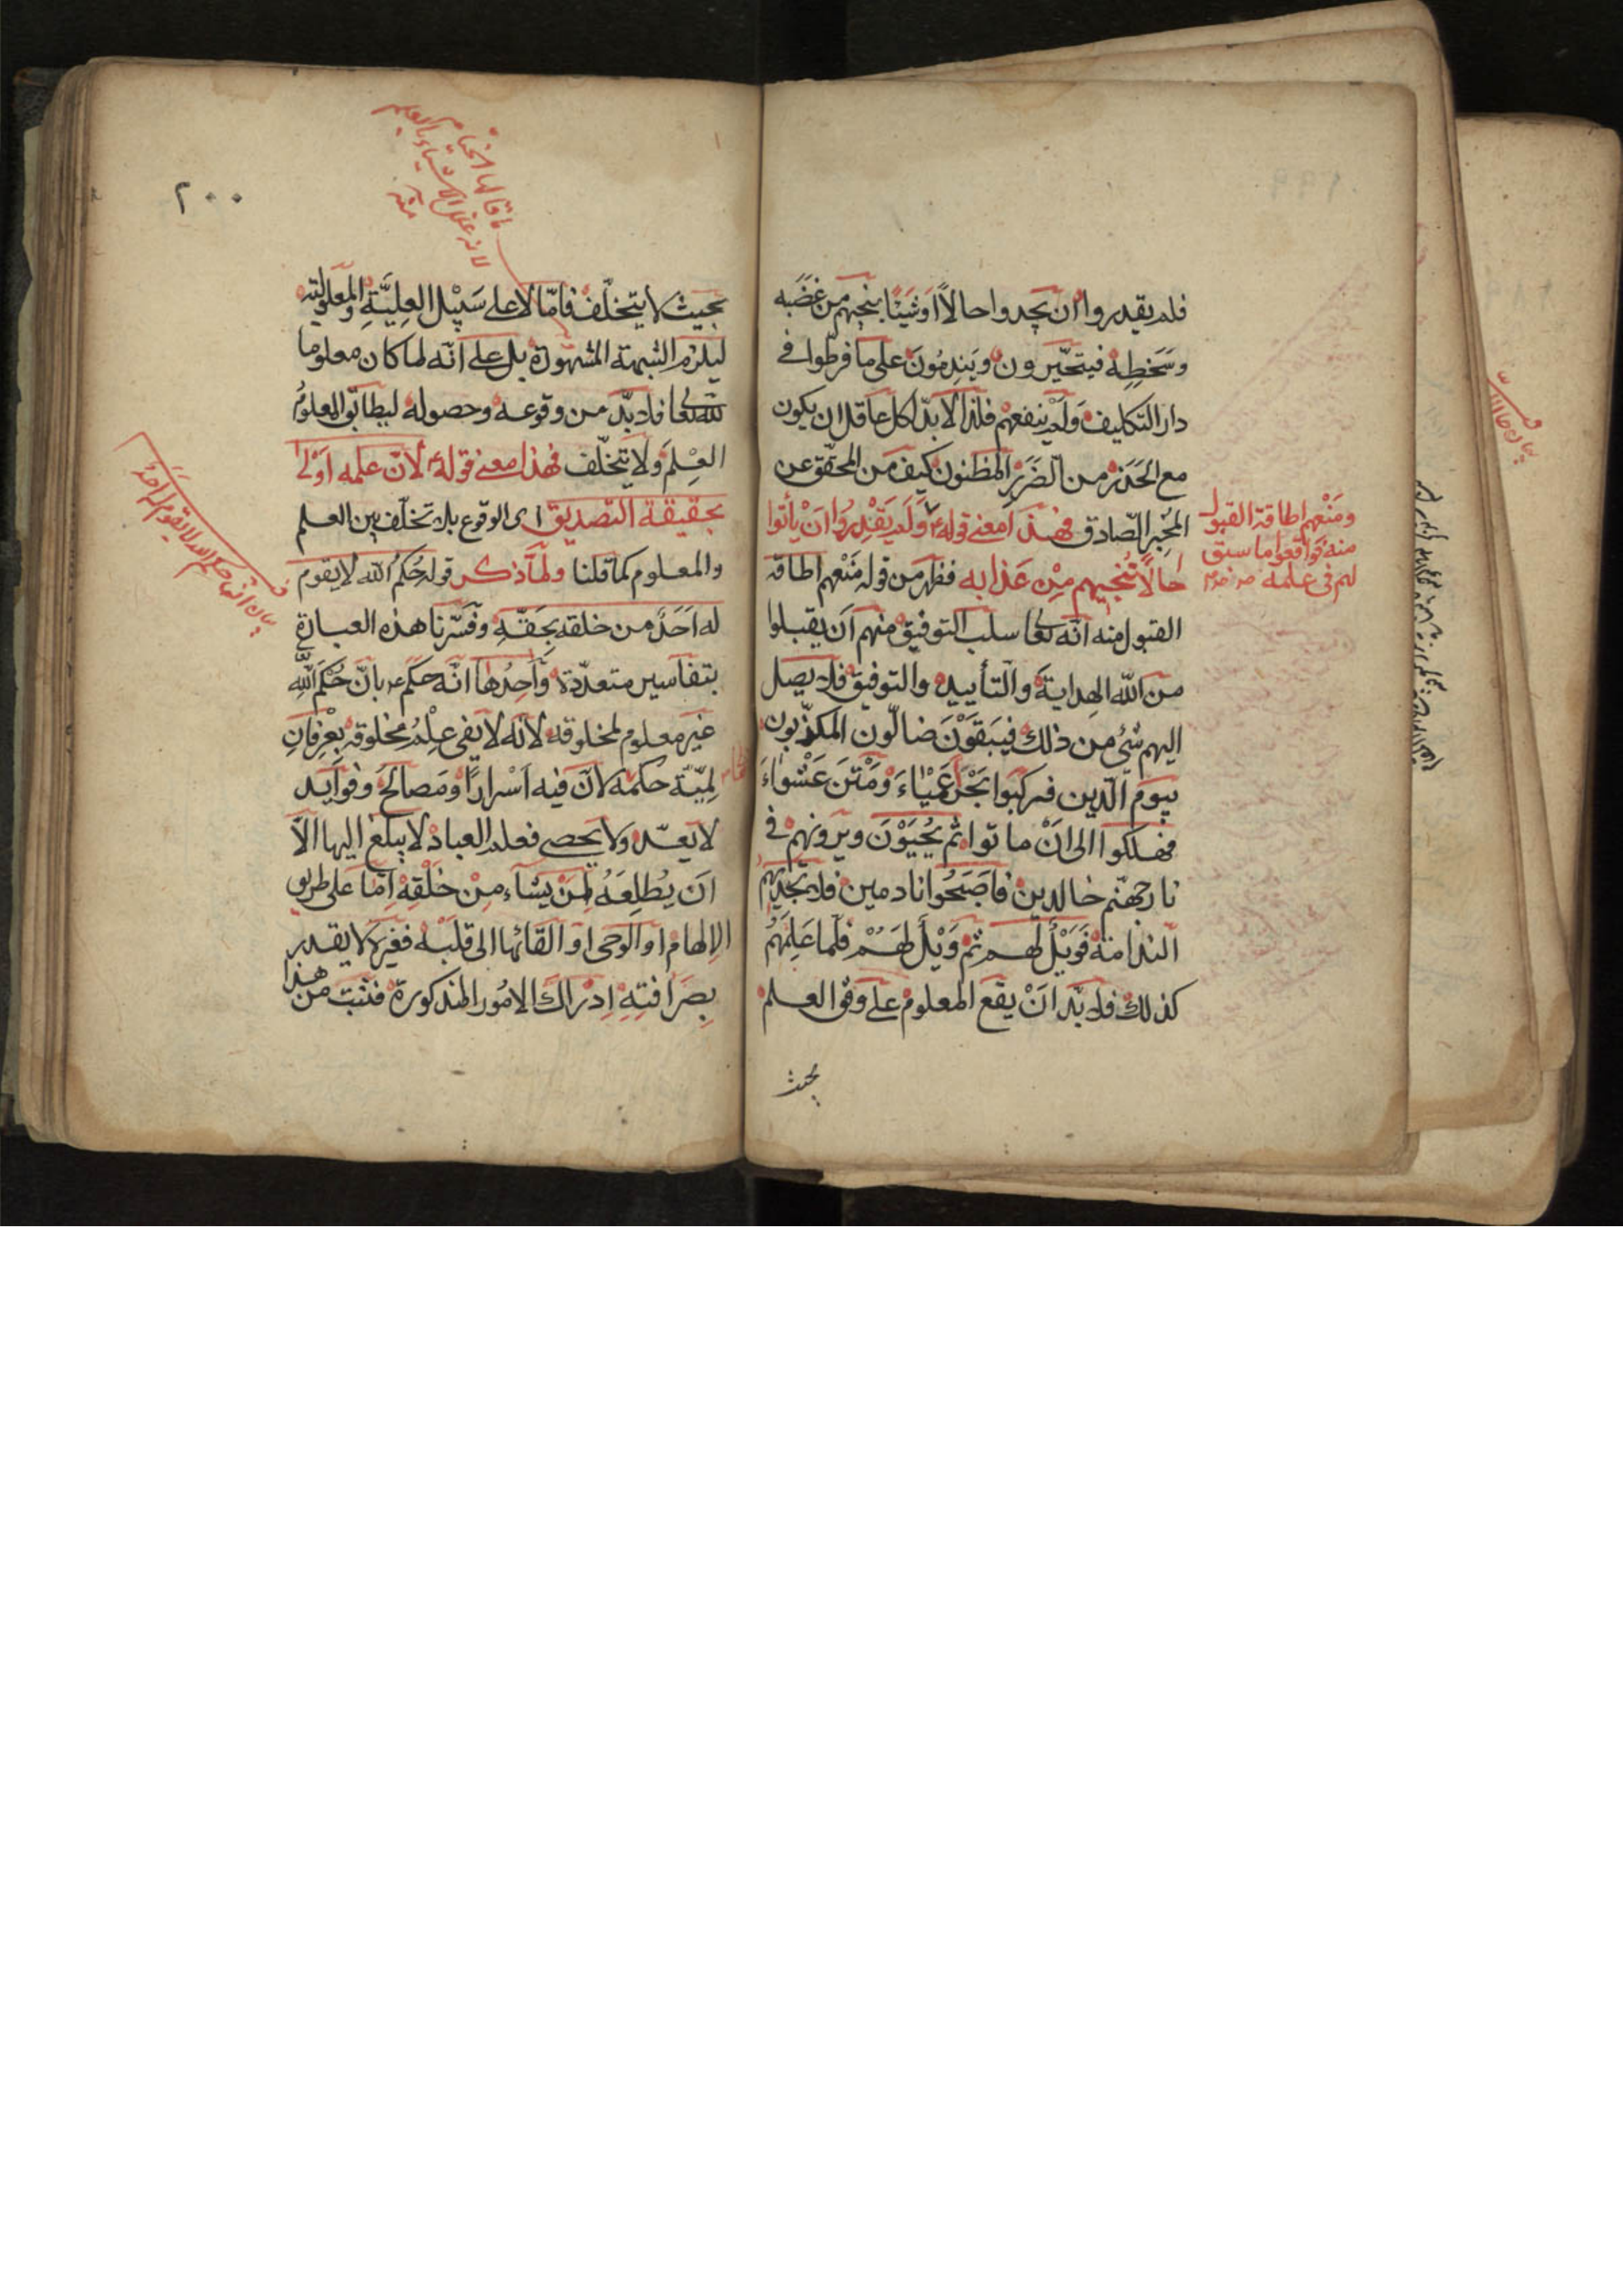 فلم يقدروا ان يجدوا حالاً او شيئا ينجيهم من غضبه
وسخطه فيتحيرون ويندمون على ما فرطوا في
دار التكليف ولم ينفعهم فلذا لا بدّ لكل عاقل ان يكون
مع الحذر من الضرر المظنون كيف من المحقّق عن
المخبر الصّادق فهذا معنى قوله ولم يقدروا ان يأتوا
حالاً تنجيهم من عذابه فظهر من قوله منعهم اطاقة
القبول منه انّه تعا سلب التوفيق منهم ان يقبلوا
من الله الهداية والتأييد والتوفيق فلا يصل
اليهم شئ من ذلك فيبقون ضالّون المكذّبون
بيوم الدّين فركبوا بحر عمياء ومتن عشواء
فهلكوا الى ان ماتوا ثم يحيون ويرونهم في
نار جهنّم خالدين فاصبحوا نادمين فلا تجديهم
الندامة فويل لهم ثم ويل لهم فلما علمهم
كذلك فلا بدّ ان يقع المعلوم على وفق العلم
بحيث
ومنعهم اطاقة القبول
منه فواقعوا ما سبق
لهم فى علمه
٢٠٠
بحيث لا يتخلّف فامّا لا على سبيل العلّيّة والمعلولية
ليلزم الشبهة المشهورة بل على انّه لما كان معلوما
لله تعا فلا بدّ من وقوعه وحصوله ليطابق المعلوم
العلم ولا يتخلّف فهذا معنى قوله لانّ علمه اولى
بحقيقة التصديق اى الوقوع بلا تخلّف بين العلم
والمعلوم كما قلنا ولمّا ذكر قوله حكم الله لا يقوم
له احد من خلقه بحقّه وفسّرنا هذه العبارة
بتفاسير متعدّدة واحدها انّه حكم بانّ حكم الله
غير معلوم لمخلوقه لانه لا يفي علم مخلوقه بعرفان
لمّيّة حكمه لانّ فيه اسراراً ومصالح وفوايد
لا يعدّ ولا يحصى فعلم العباد لا يبلغ اليها الّا
ان يطلعه لمن يشاء من خلقه امّا على طريق
الالهام او الوحى او القائها الى قلبه فغيره لا يقدر
بصرافته ادراك الامور المذكورة فثبت من هذا
بيان انّ حكم الله لا يقوم له احد